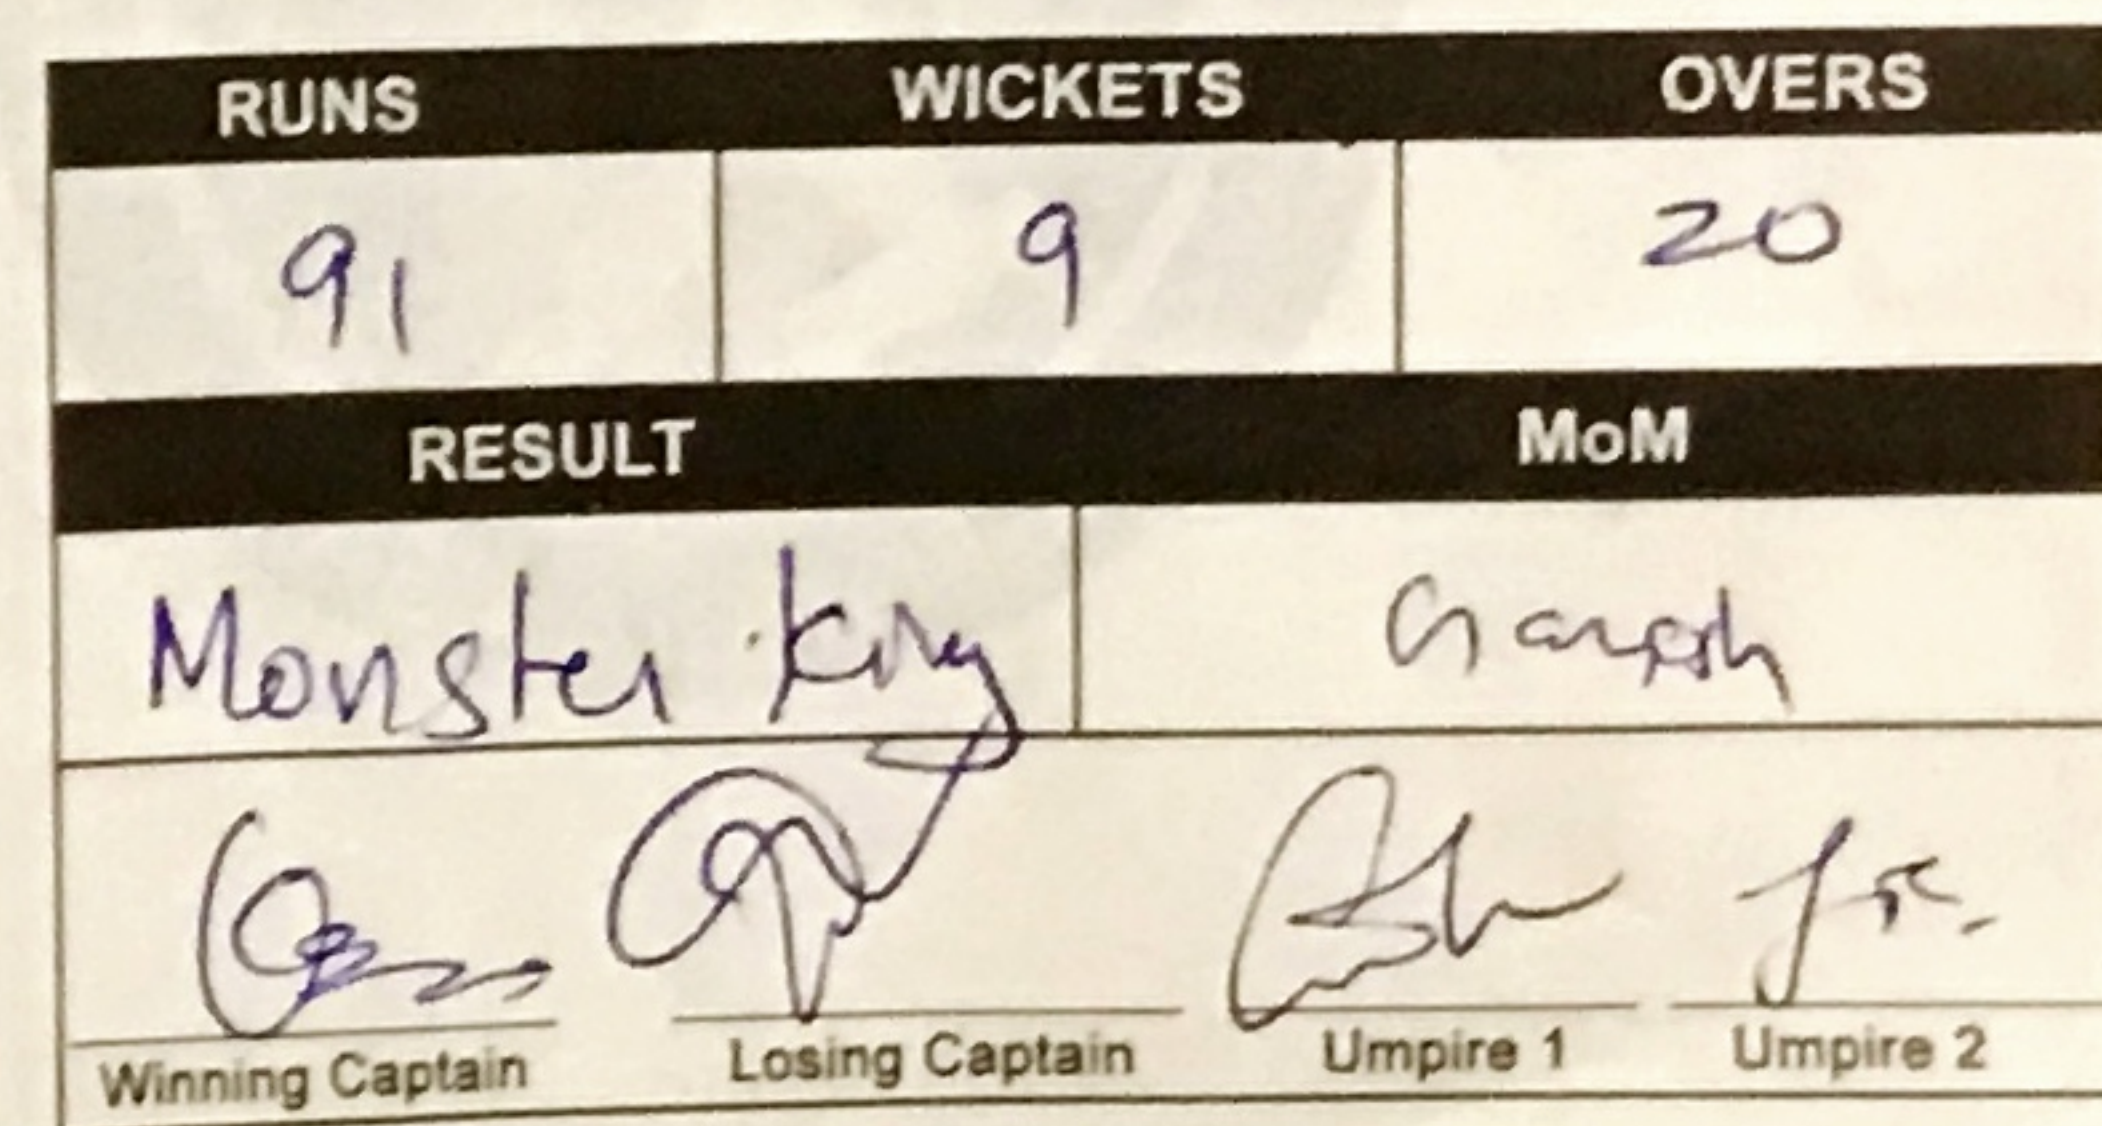 RUNS WICKETS OVERS
91 9 20
RESULT MoM
Monster King Ganesh
Winning Captain Losing Captain Umpire 1 Umpire 2